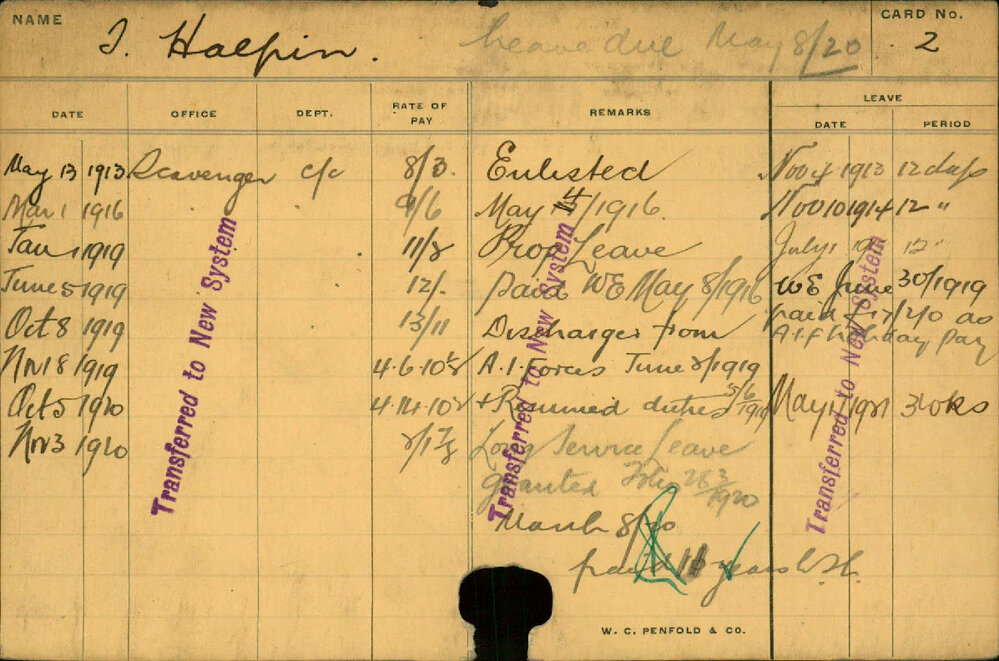 NAME
CARD No.
T. Halpin. Leave due May 8/20 2
LEAVE
DATE OFFICE DEPT. RATE OF PAY REMARKS DATE PERIOD
May 13 1913 Scavenger c/c 8/3. Enlisted Nov 4 1913 12 days
Mar 1 1916 9/6 May 14/1916. Nov 10 1914 12 "
Jan 1 1919 11/8 Prop Leave July 1 12 "
June 5 1919 12/. paid WE May 8/1916 WE June 30/1919
Oct 8 1919 13/11 Discharged from paid 2/0 as
A.I.F holiday Pay
Nov 18 1919 4.6.10½ A.I. Forces June 2/1919
Oct 5 1920 4.14.10½ + Resumed duties 5/6 1919 May 1921 3 wks
Nov 3 1920 Long Service Leave
granted 1920
March 8/20
paid years
Transferred to New System
Transferred to New System
Transferred to New System
W. C. PENFOLD & CO.